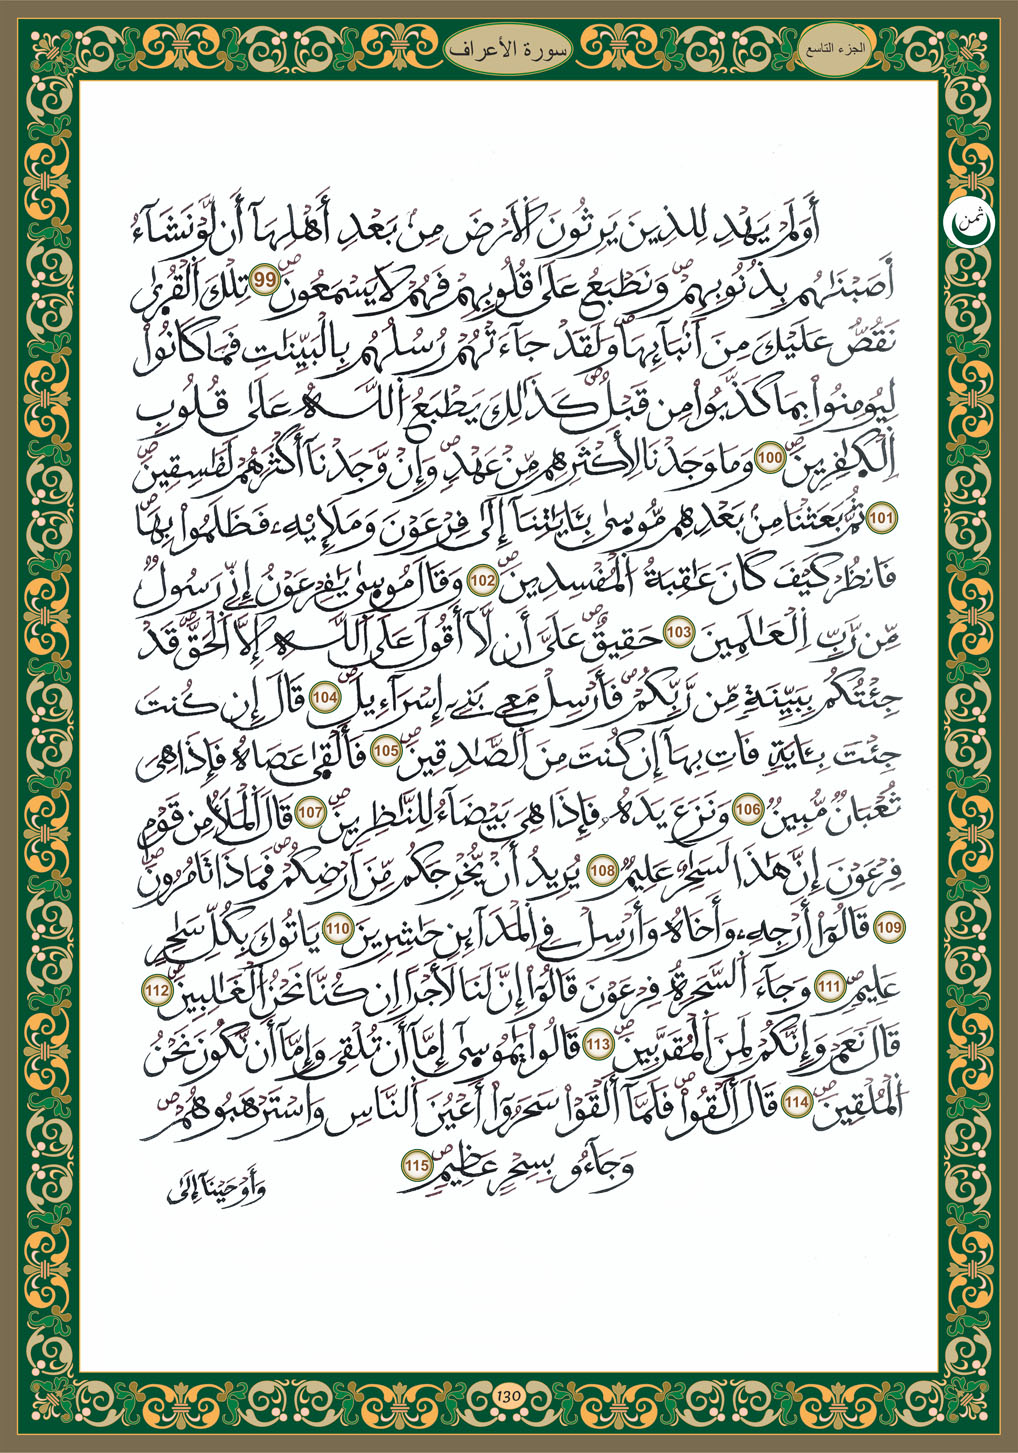 سورة الأعراف
الجزء التاسع
ثمن
أَوَلَمْ يَهْدِ لِلذِينَ يَرِثُونَ اَ۬لَارْضَ مِنۢ بَعْدِ أَهْلِهَآ أَن لَّوْ نَشَآءُ
أَصَبْنَٰهُم بِذُنُوبِهِمْ وَنَطْبَعُ عَلَىٰ قُلُوبِهِمْ فَهُمْ لَا يَسْمَعُونَۖ 99 تِلْكَ اَ۬لْقُرَىٰ
نَقُصُّ عَلَيْكَ مِنَ اَنۢبَآئِهَاۖ وَلَقَدْ جَآءَتْهُمْ رُسُلُهُم بِالْبَيِّنَٰتِ فَمَا كَانُواْ
لِيُومِنُواْ بِمَا كَذَّبُواْ مِن قَبْلُۖ كَذَٰلِكَ يَطْبَعُ اُ۬للَّهُ عَلَىٰ قُلُوبِ
اِ۬لْكٰ۪فِرِينَۖ 100 وَمَا وَجَدْنَا لِأَكْثَرِهِم مِّنْ عَهْدٖۖ وَإِنْ وَّجَدْنَآ أَكْثَرَهُمْ لَفَٰسِقِينَۖ
101 ثُمَّ بَعَثْنَا مِنۢ بَعْدِهِم مُّوس۪ىٰ بِـَٔايَٰتِنَآ إِلَىٰ فِرْعَوْنَ وَمَلَإِيْهِۦ فَظَلَمُواْ بِهَاۖ
فَانظُرْ كَيْفَ كَانَ عَٰقِبَةُ اُ۬لْمُفْسِدِينَۖ 102 وَقَالَ مُوس۪ىٰ يَٰفِرْعَوْنُ إِنِّے رَسُولٞ
مِّن رَّبِّ اِ۬لْعَٰلَمِينَ 103 حَقِيقٌۖ عَلَيَّ أَن لَّآ أَقُولَ عَلَى اَ۬للَّهِ إِلَّا اَ۬لْحَقَّۖ قَدْ
جِئْتُكُم بِبَيِّنَةٖ مِّن رَّبِّكُمْ فَأَرْسِلْ مَعِے بَنِےٓ إِسْرَآءِيلَۖ 104 قَالَ إِن كُنتَ
جِئْتَ بِـَٔايَةٖ فَاتِ بِهَآ إِن كُنتَ مِنَ اَ۬لصَّٰدِقِينَۖ 105 فَأَلْقَىٰ عَصَاهُ فَإِذَا هِيَ
ثُعْبَانٞ مُّبِينٞۖ 106 وَنَزَعَ يَدَهُۥ فَإِذَا هِيَ بَيْضَآءُ لِلنَّٰظِرِينَۖ 107 قَالَ اَ۬لْمَلَأُ مِن قَوْمِ
فِرْعَوْنَ إِنَّ هَٰذَا لَسَٰحِرٌ عَلِيمٞ 108 يُرِيدُ أَنْ يُّخْرِجَكُم مِّنَ اَرْضِكُمْۖ فَمَاذَا تَامُرُونَۖ
109 قَالُوٓاْ أَرْجِهِۦ وَأَخَاهُ وَأَرْسِلْ فِے اِ۬لْمَدَآئِنِ حَٰشِرِينَ 110 يَاتُوكَ بِكُلِّ سَٰحِرٍ
عَلِيمٖۖ 111 وَجَآءَ اَ۬لسَّحَرَةُ فِرْعَوْنَ قَالُوٓاْ إِنَّ لَنَا لَأَجْراً اِن كُنَّا نَحْنُ اُ۬لْغَٰلِبِينَۖ 112
قَالَ نَعَمْ وَإِنَّكُمْ لَمِنَ اَ۬لْمُقَرَّبِينَۖ 113 قَالُواْ يَٰمُوس۪ىٰٓ إِمَّآ أَن تُلْقِيَ وَإِمَّآ أَن نَّكُونَ نَحْنُ
اُ۬لْمُلْقِينَۖ 114 قَالَ أَلْقُواْۖ فَلَمَّآ أَلْقَوْاْ سَحَرُوٓاْ أَعْيُنَ اَ۬لنَّاسِ وَاسْتَرْهَبُوهُمْۖ
وَجَآءُو بِسِحْرٍ عَظِيمٖۖ 115
وَأَوْحَيْنَآ إِلَىٰ
130